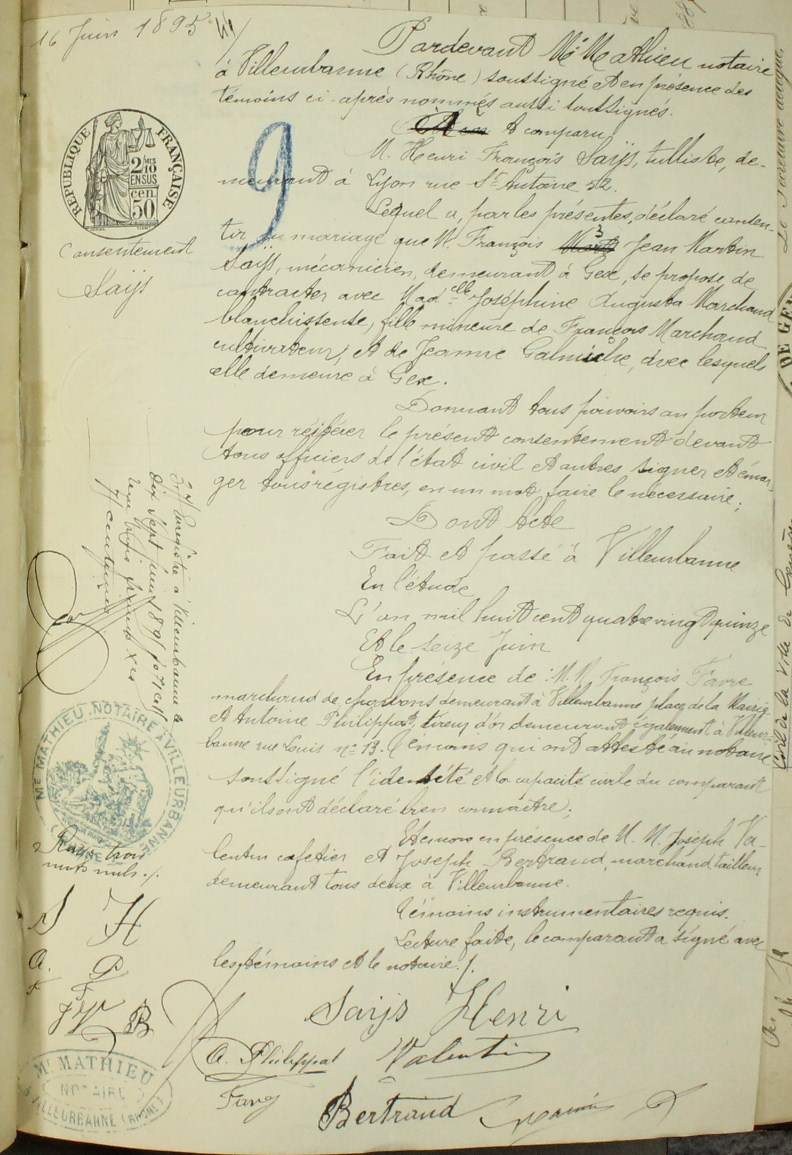 16 Juin 1895
Pardevant Me Mathieu notaire
à Villeurbanne (Rhône) soussigné et en présence des
témoins ci-après nommés aussi soussignés.
A comparu
M. Henri François Saÿs, tulliste, de-
meurant à Lyon rue St Antoine 52.
Lequel a, par les présentes, déclaré consen-
tir au mariage que M. François Jean Martin
Saÿs, mécanicien, demeurant à Gex, se propose de
contracter avec Madelle Joséphine Augusta Marchand
blanchisseuse, fille mineure de François Marchand
cultivateur, et de Jeanne, avec lesquels
elle demeure à Gex.
Donnant tous pouvoirs au porteur
pour réitérer le présent consentement devant
tous officiers de l'état civil et autres signer et émar-
ger tous régistres, en un mot faire le nécessaire;
Dont Acte
Fait et passé à Villeurbanne
En l'étude
L'an mil huit cent quatre vingt quinze
Et le seize Juin
En présence de M.M. François Favre
marchand de charbons demeurant à Villeurbanne place de la Mairie
et Antoine Philippat, tireur d'or demeurant également à Villeur-
banne rue Louis no 13. Témoins qui ont attesté au notaire
soussigné l'identité et la capacité civile du comparant
qu'ils ont déclaré bien connaître;
Et encore en présence de M.M. Joseph Va-
lentin cafetier et Joseph Bertrand, marchand tailleur
demeurant tous deux à Villeurbanne.
Témoins instrumentaires requis.
Lecture faite, le comparant a signé avec
les témoins et le notaire ./.
Saÿs Henri
A. Philippat Valentin
Bertrand
9
RÉPUBLIQUE FRANÇAISE
2/10 EN SUS
50 cen
Consentement
Saÿs
Enregistré à Villeurbanne le
dix sept juin 1895
Reçu trois francs
centimes
Me MATHIEU, NOTAIRE A VILLEURBANNE
(RHÔNE)
Rayé trois
mots nuls ./.
S H
A. P
F
J V B
Me MATHIEU
NOTAIRE
VILLEURBANNE (RHÔNE)
DE GEX